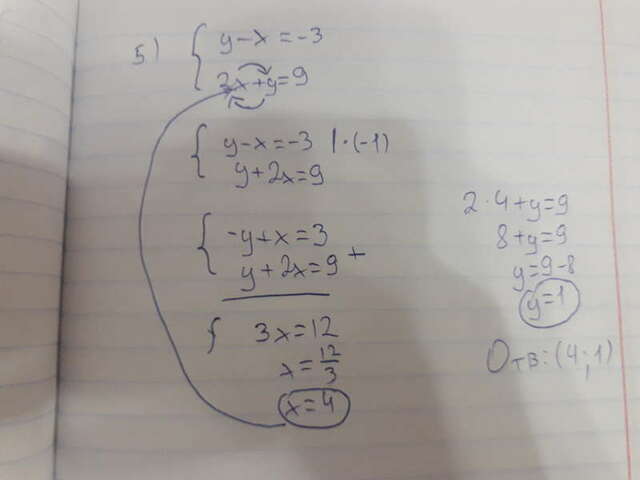 5) { y-x=-3
2x+y=9
{ y-x=-3 |·(-1)
y+2x=9
{ -y+x=3
y+2x=9 +
{ 3x=12
x=12/3
x=4
2·4+y=9
8+y=9
y=9-8
y=1
Отв: (4,1)